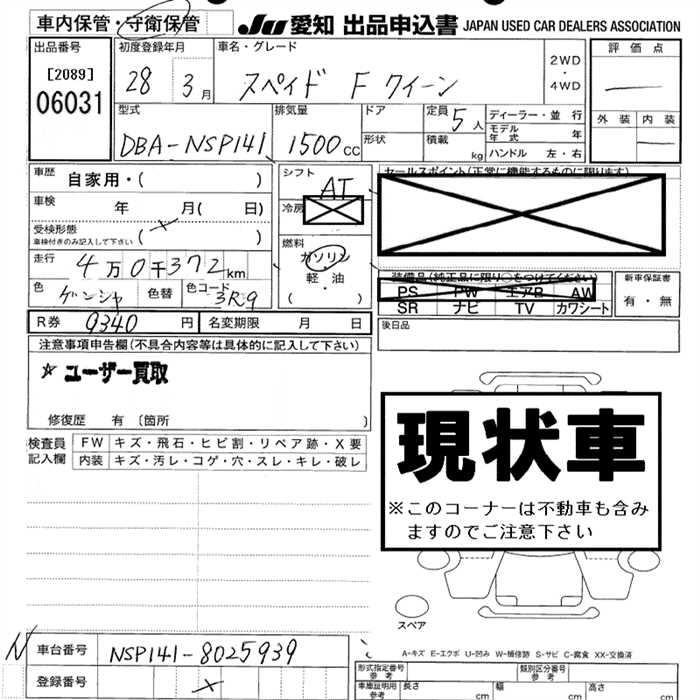 車内保管・守衛保管
JU 愛知 出品申込書 JAPAN USED CAR DEALERS ASSOCIATION
出品番号
[2089]
06031
初度登録年月
28 3月
車名・グレード
スペイド F クイーン
2WD
・
4WD
評価点
外装 内装
型式
DBA-NSP141
排気量
1500cc
ドア
形状
定員 5人
積載 kg
ディーラー・並行
モデル年式 年
ハンドル 左・右
車歴
自家用・( )
車検 年 月( 日)
受検形態
車検付きのみ記入して下さい
( )
走行
4万0千372km
色 ゲンシャ 色替 色コード 3R9
シフト
AT
冷房
燃料
ガソリン
軽・油
( )
セールスポイント(正常に機能するものに限ります)
装備品(純正品に限り○をつけてください)
PS PW エアB AW
SR ナビ TV カワシート
新車保証書
有・無
R券 9340 円 名変期限 月 日
後日品
注意事項申告欄(不具合内容等は具体的に記入して下さい)
☆ユーザー買取
修復歴 有 〔箇所 〕
検査員記入欄
FW キズ・飛石・ヒビ割・リペア跡・X要
内装 キズ・汚レ・コゲ・穴・スレ・キレ・破レ
現状車
※このコーナーは不動車も含みますのでご注意下さい
スペア
A-キズ E-エクボ U-凹み W-補修跡 S-サビ C-腐食 XX-交換済
N 車台番号 NSP141-8025939
登録番号
形式指定番号
参考
類別区分番号
参考
車庫証明用
参考
長さ cm 幅 cm 高さ cm